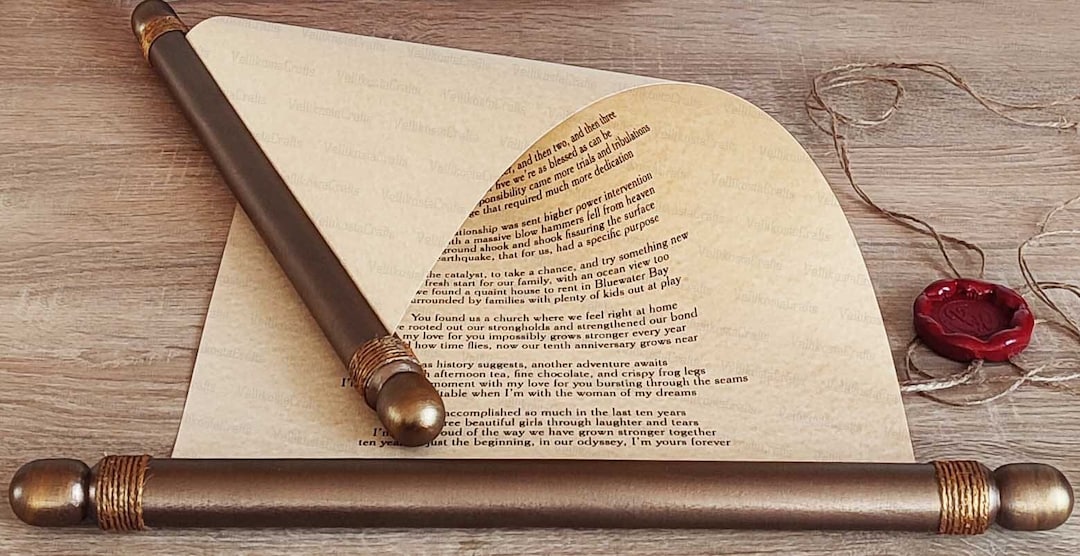 and then two, and then three
five we're as blessed as can be
came more trials and tribulations
that required much more dedication
was sent higher power intervention
a massive blow hammers fell from heaven
ground shook and shook fissuring the surface
that for us, had a specific purpose
the catalyst, to take a chance, and try something new
fresh start for our family, with an ocean view too
we found a quaint house to rent in Bluewater Bay
surrounded by families with plenty of kids out at play
You found us a church where we feel right at home
rooted out our strongholds and strengthened our bond
my love for you impossibly grows stronger every year
how time flies, now our tenth anniversary grows near
as history suggests, another adventure awaits
afternoon tea, fine chocolate, and crispy frog legs
moment with my love for you bursting through the seams
when I'm with the woman of my dreams
accomplished so much in the last ten years
beautiful girls through laughter and tears
of the way we have grown stronger together
ten just the beginning, in our odyssey, I'm yours forever
VelikostaCrafts